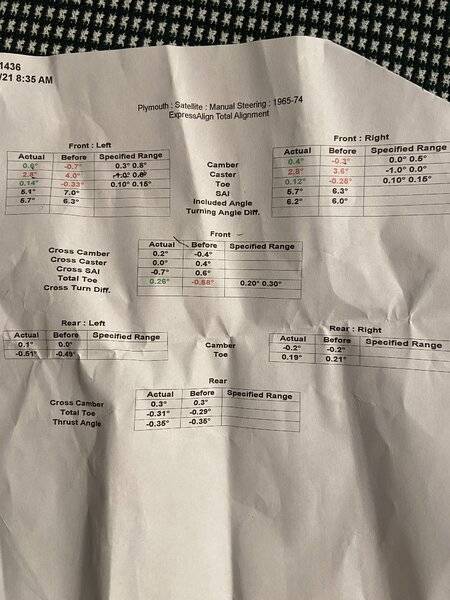 1436
/21 8:35 AM
Plymouth : Satellite : Manual Steering : 1965-74
ExpressAlign Total Alignment
Front : Left
Actual Before Specified Range
0.6° -0.7° 0.3° 0.8°
2.8° 4.0° -1.0° 0.0°
0.14° -0.33° 0.10° 0.15°
5.1° 7.0°
5.7° 6.3°
Camber
Caster
Toe
SAI
Included Angle
Turning Angle Diff.
Front : Right
Actual Before Specified Range
0.4° -0.3° 0.0° 0.5°
2.8° 3.6° -1.0° 0.0°
0.12° -0.25° 0.10° 0.15°
5.7° 6.3°
6.2° 6.0°
Front
Actual Before Specified Range
Cross Camber 0.2° -0.4°
Cross Caster 0.0° 0.4°
Cross SAI -0.7° 0.6°
Total Toe 0.26° -0.58° 0.20° 0.30°
Cross Turn Diff.
Rear : Left
Actual Before Specified Range
0.1° 0.0°
-0.51° -0.49°
Camber
Toe
Rear : Right
Actual Before Specified Range
-0.2° -0.2°
0.19° 0.21°
Rear
Actual Before Specified Range
Cross Camber 0.3° 0.3°
Total Toe -0.31° -0.29°
Thrust Angle -0.35° -0.35°